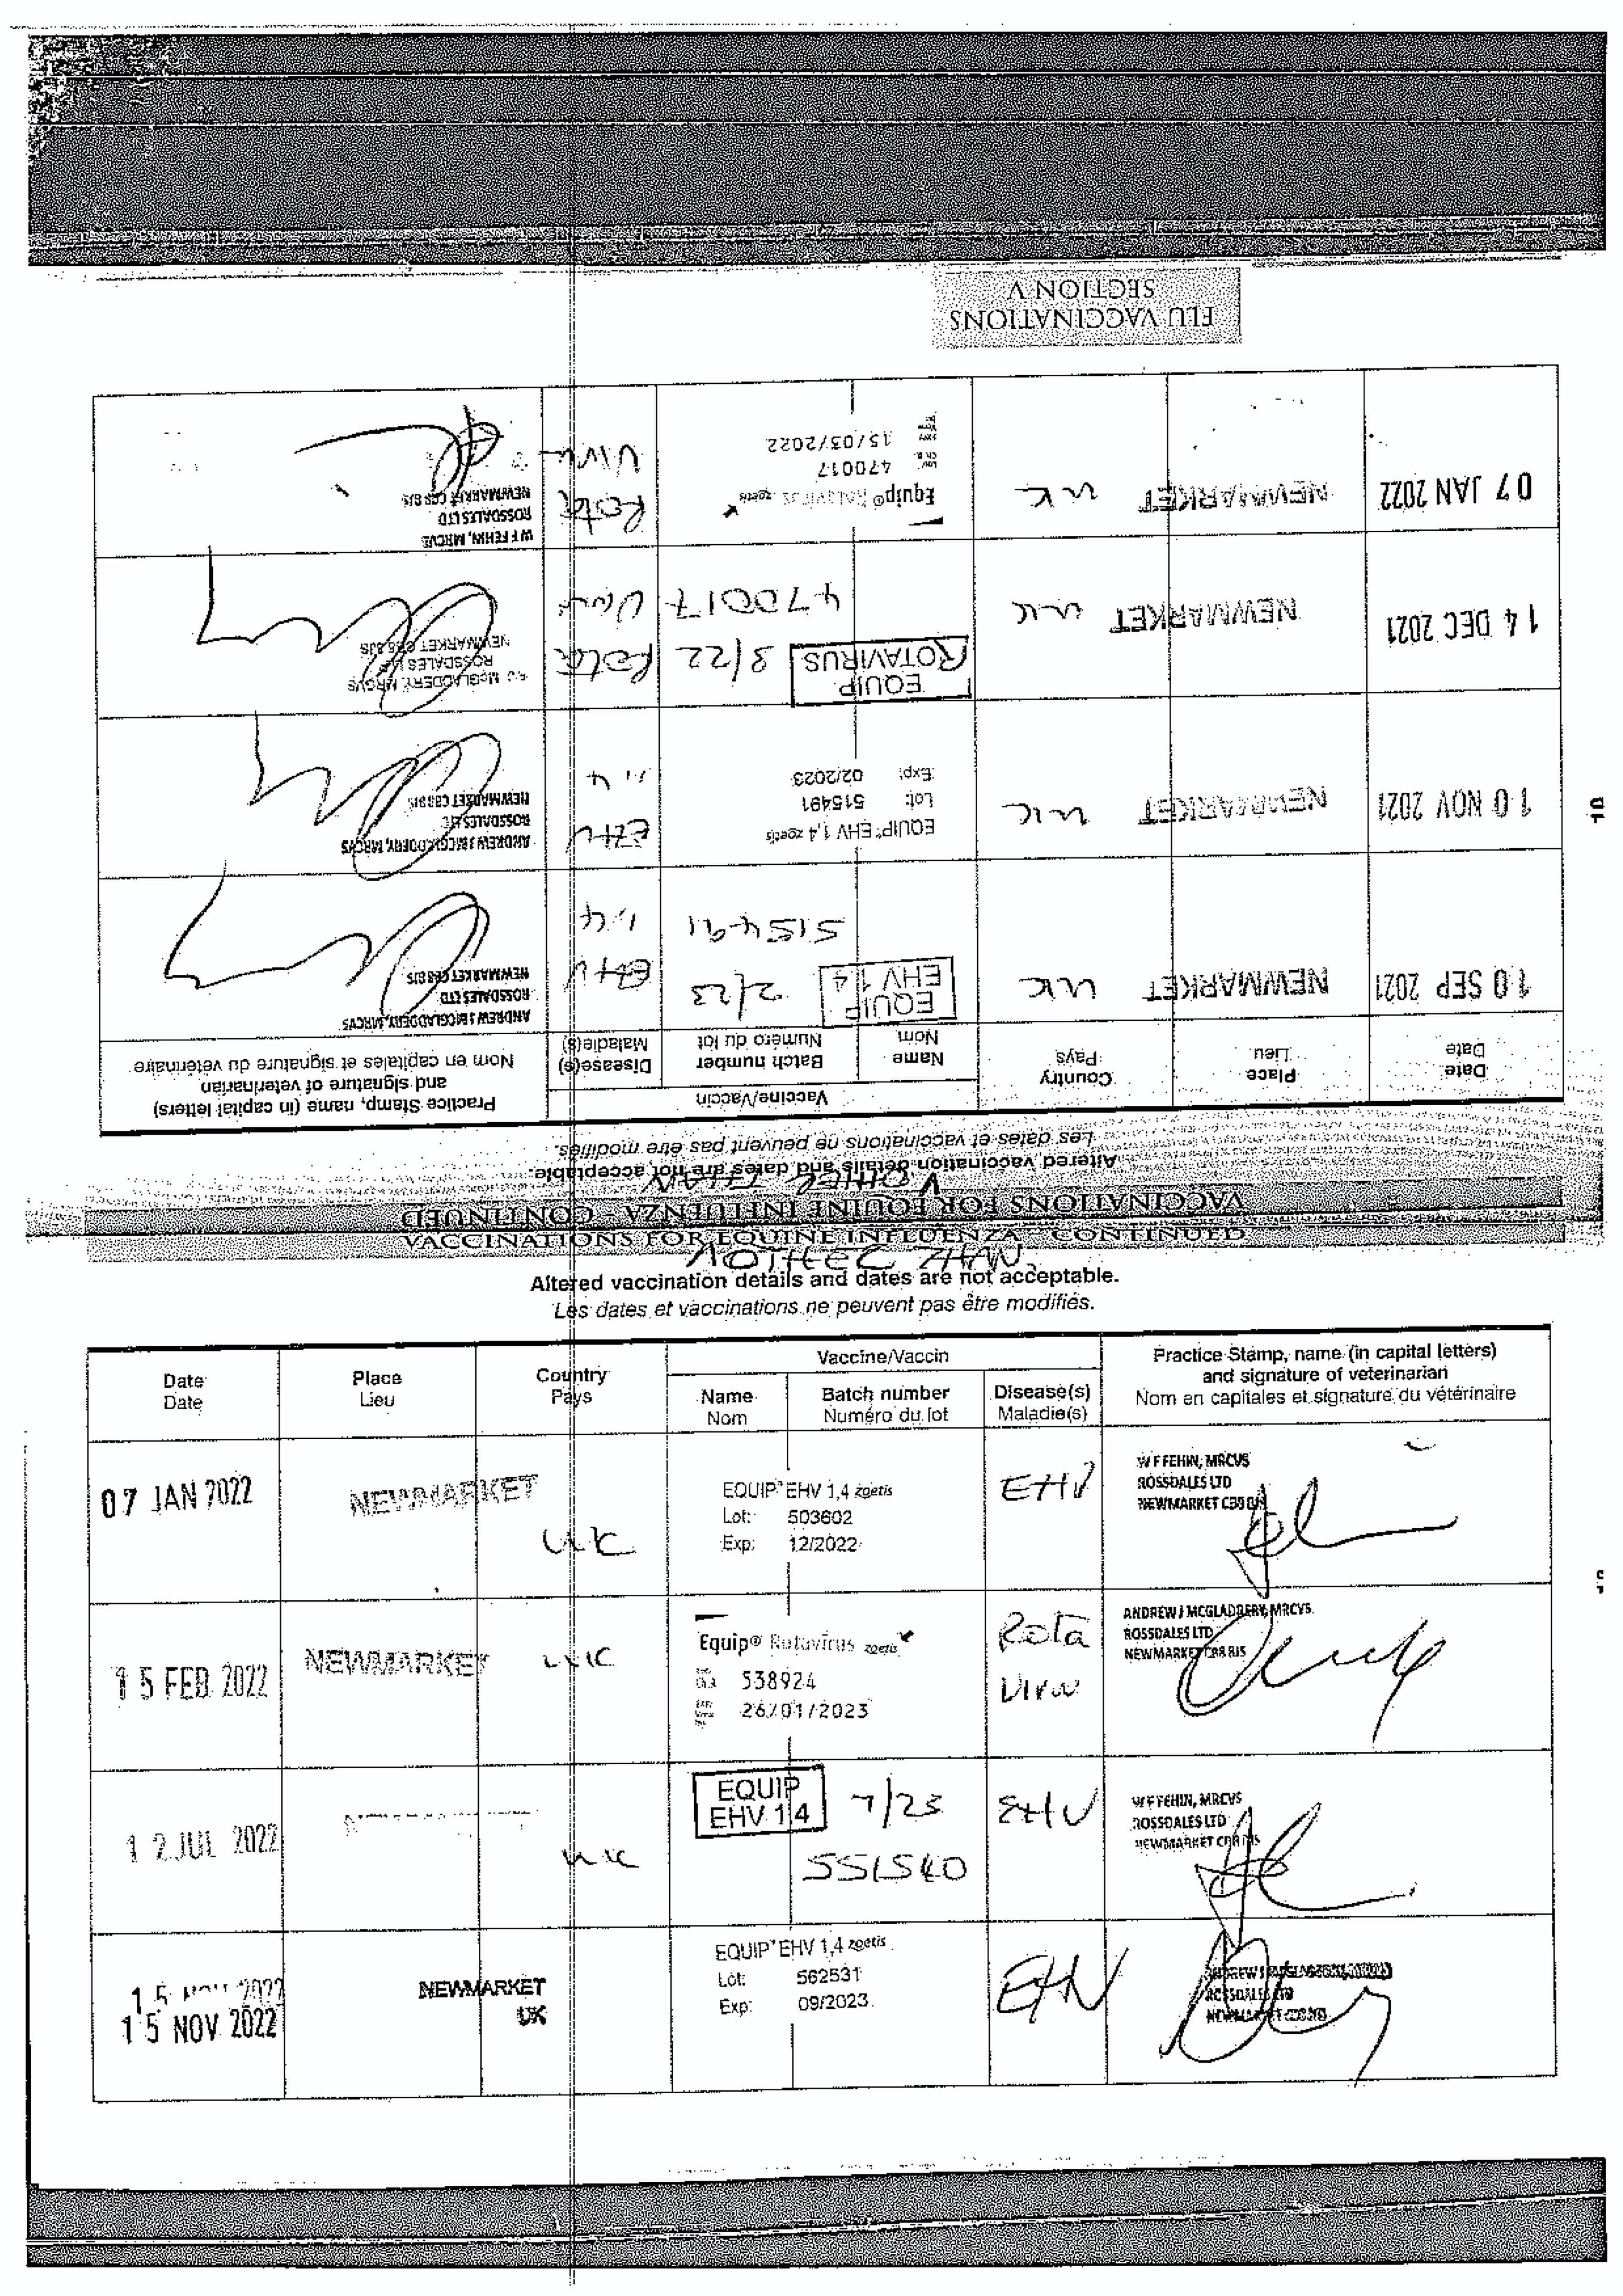 VACCINATIONS FOR EQUINE INFLUENZA - CONTINUED
OTHER THAN
Altered vaccination details and dates are not acceptable.
Les dates et vaccinations ne peuvent pas être modifiés.
Date
Date
Place
Lieu
Country
Pays
Vaccine/Vaccin
Name
Nom
Batch number
Numéro du lot
Disease(s)
Maladie(s)
Practice Stamp, name (in capital letters)
and signature of veterinarian
Nom en capitales et signature du vétérinaire
10 SEP 2021
NEWMARKET
UK
EQUIP
EHV 1 4
2/23
515491
EHV
1.4
ANDREW J MCGLADDERY, MRCVS
ROSSDALES LTD
NEWMARKET CB8 8JS
10 NOV 2021
NEWMARKET
UK
EQUIP® EHV 1,4 zoetis
Lot: 515491
Exp: 02/2023
EHV
1.4
ANDREW J MCGLADDERY, MRCVS
ROSSDALES LTD
NEWMARKET CB8 8JS
14 DEC 2021
NEWMARKET
UK
EQUIP
ROTAVIRUS
3/22
470017
Rota
Virus
McGLADDERY, MRCVS
ROSSDALES
NEWMARKET CB8 8JS
07 JAN 2022
NEWMARKET
UK
Equip® Rotavirus zoetis
470017
15/03/2022
Rota
Virus
W F FEHIN, MRCVS
ROSSDALES LTD
NEWMARKET CB8 8JS
FLU VACCINATIONS
SECTION V
VACCINATIONS FOR EQUINE INFLUENZA - CONTINUED
OTHER THAN
Altered vaccination details and dates are not acceptable.
Les dates et vaccinations ne peuvent pas être modifiés.
Date
Date
Place
Lieu
Country
Pays
Vaccine/Vaccin
Name
Nom
Batch number
Numéro du lot
Disease(s)
Maladie(s)
Practice Stamp, name (in capital letters)
and signature of veterinarian
Nom en capitales et signature du vétérinaire
07 JAN 2022
NEWMARKET
UK
EQUIP® EHV 1,4 zoetis
Lot: 503602
Exp: 12/2022
EHV
W F FEHIN, MRCVS
ROSSDALES LTD
NEWMARKET CB8 8JS
15 FEB 2022
NEWMARKET
UK
Equip® Rotavirus zoetis
538924
26/01/2023
Rota
Virus
ANDREW J MCGLADDERY, MRCVS
ROSSDALES LTD
NEWMARKET CB8 8JS
12 JUL 2022
UK
EQUIP
EHV 1 4
7/23
551540
EHV
W F FEHIN, MRCVS
ROSSDALES LTD
NEWMARKET CB8 8JS
15 NOV 2022
15 NOV 2022
NEWMARKET
UK
EQUIP® EHV 1,4 zoetis
Lot: 562531
Exp: 09/2023
EHV
ROSSDALES LTD